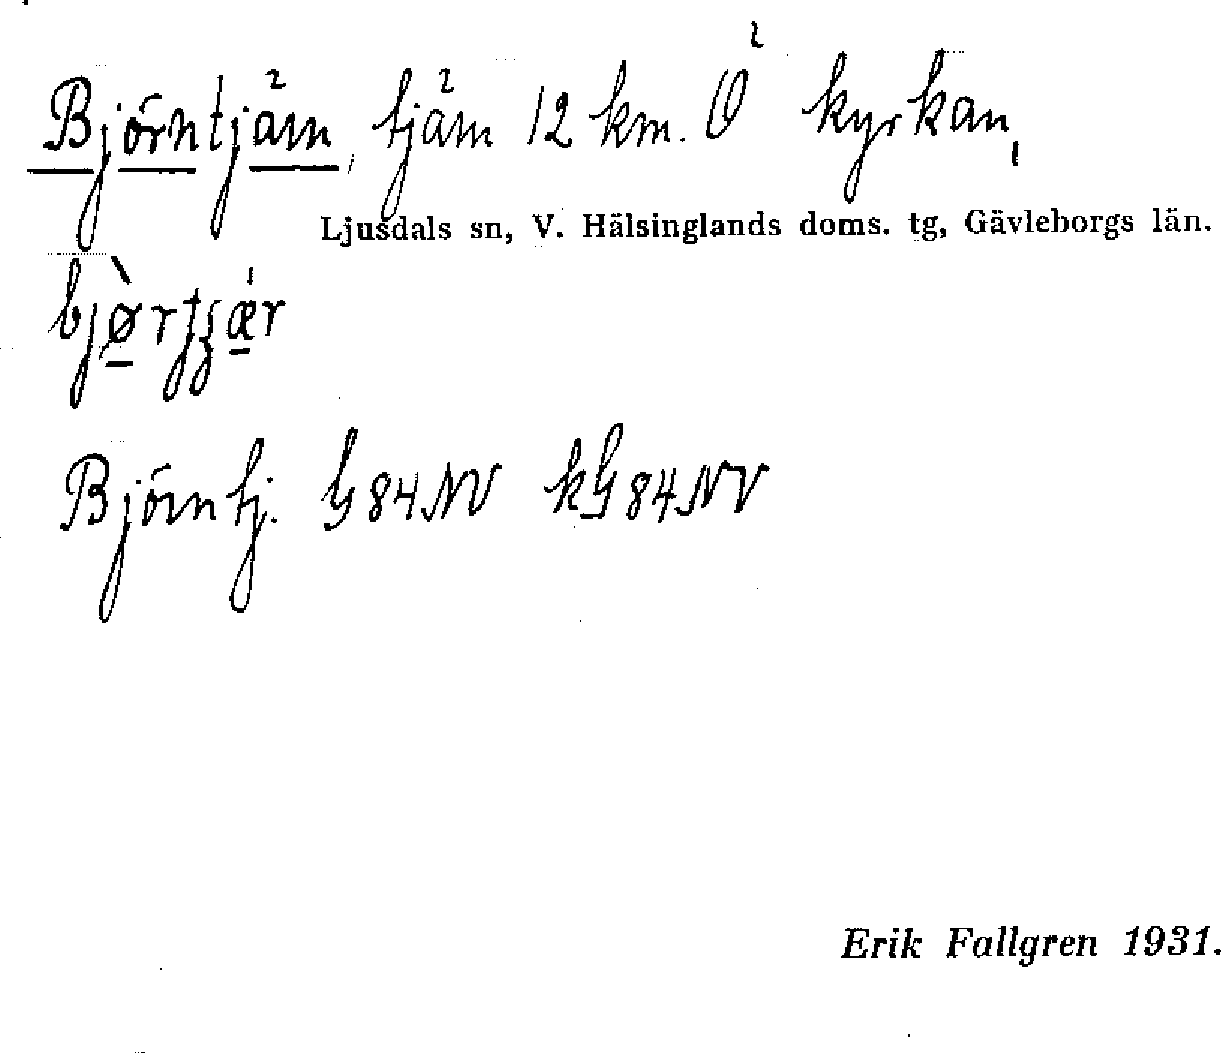 Björntjärn, tjärn 12 km. O kyrkan,
Ljusdals sn, V. Hälsinglands doms. tg, Gävleborgs län.
Björntj. G84NV kG84NV
Erik Fallgren 1931.